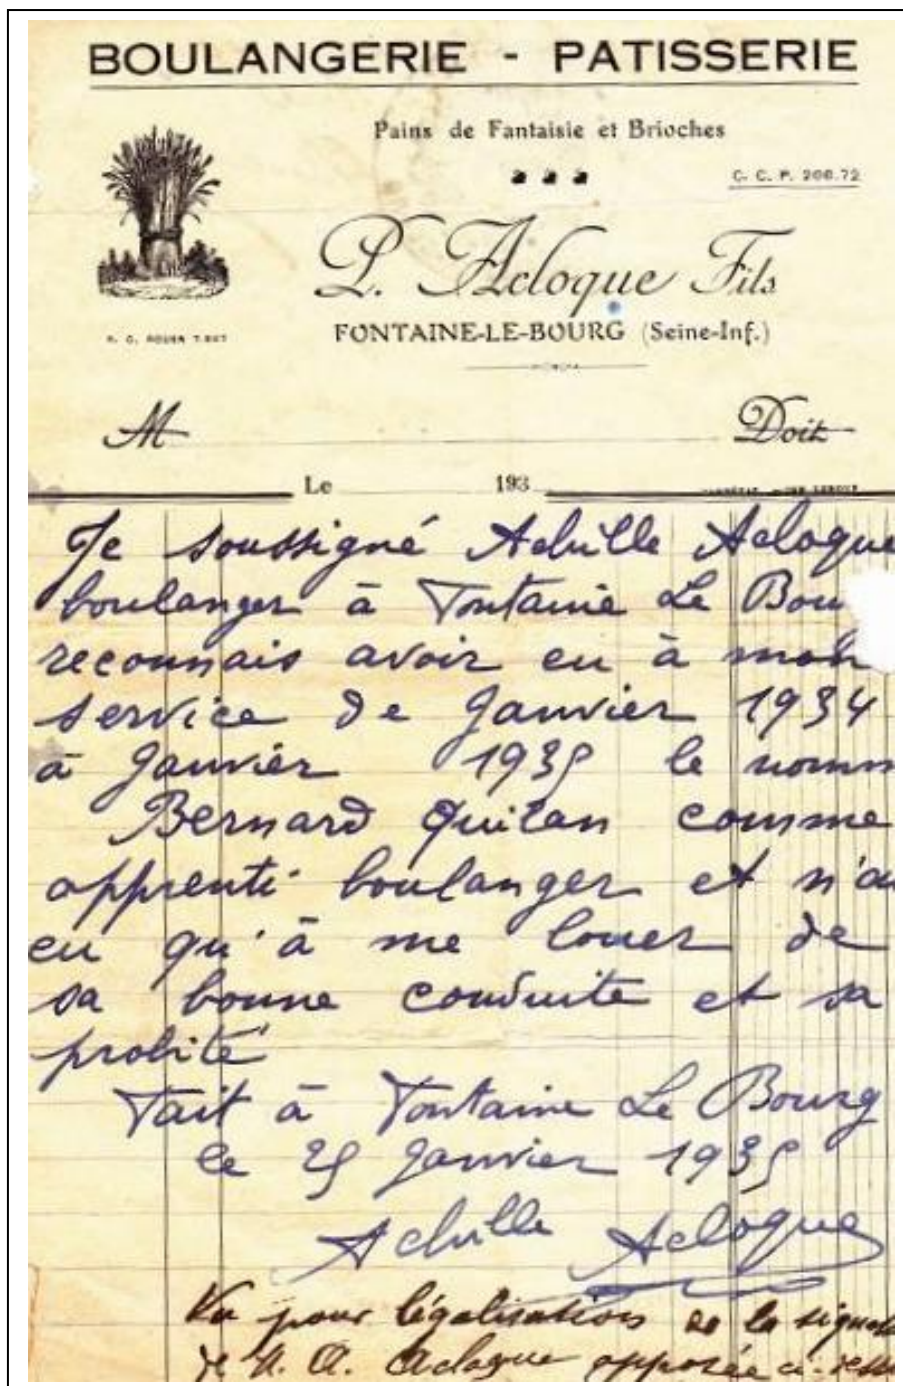 BOULANGERIE - PATISSERIE
Pains de Fantaisie et Brioches
C. C. P. 208.72
P. Acloque Fils
FONTAINE-LE-BOURG (Seine-Inf.)
R. C. ROUEN
M Doit
Le 193
Je soussigné Achille Acloque
boulanger à Fontaine Le Bou
reconnais avoir eu à mon
service de Janvier 1934
à Janvier 1935 le nomm
Bernard comme
apprenti boulanger et n'ai
eu qu'à me louer de
sa bonne conduite et sa
probité
Fait à Fontaine Le Bourg
le 25 Janvier 1935
Achille Acloque
Vu pour légalisation de la signat
de M. A. Acloque apposée ci-dessu